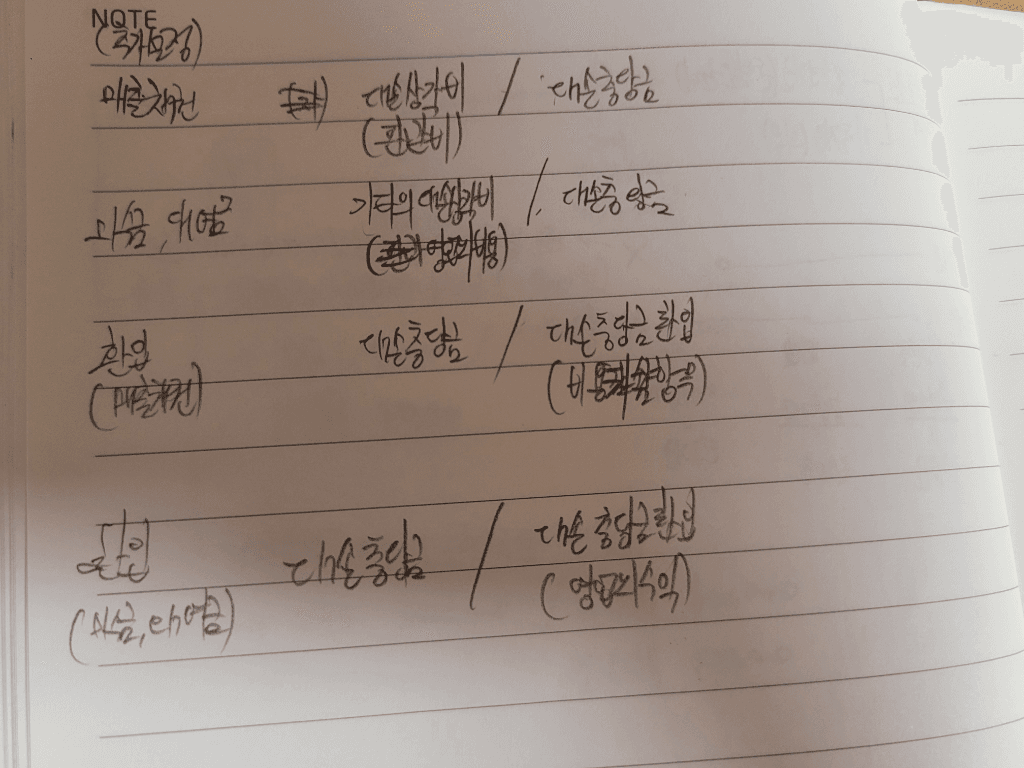 NOTE
매출채권 대손상각비 / 대손충당금
(판관비)
미수금, 대여금 기타의 대손상각비 / 대손충당금
(영업외비용)
환입 대손충당금 / 대손충당금 환입
(매출채권)
환입 대손충당금 / 대손충당금 환입
(미수금, 대여금) (영업외수익)